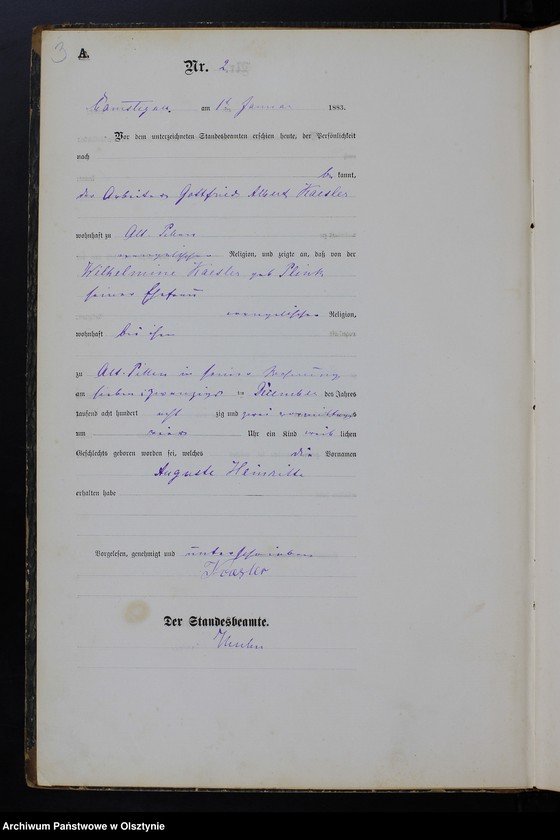 3 A.
Nr. 2.
am 12 Januar 1883.
Vor dem unterzeichneten Standesbeamten erschien heute, der Persönlichkeit
nach
be kannt,
der Arbeiter Gottfried Albert Kaesler
wohnhaft zu Alt.
evangelischer Religion, und zeigte an, daß von der
Wilhelmine Kaesler geb
seiner Ehefrau
evangelischer Religion,
wohnhaft bei ihm
zu Alt. in seiner Wohnung
am sieben zwanzigs Dezember des Jahres
tausend acht hundert acht zig und zwei vormittags
um Uhr ein Kind weib lichen
Geschlechts geboren worden sei, welches die Vornamen
Auguste
erhalten habe
Vorgelesen, genehmigt und unterschrieben
Kaesler
Der Standesbeamte.
Archiwum Państwowe w Olsztynie